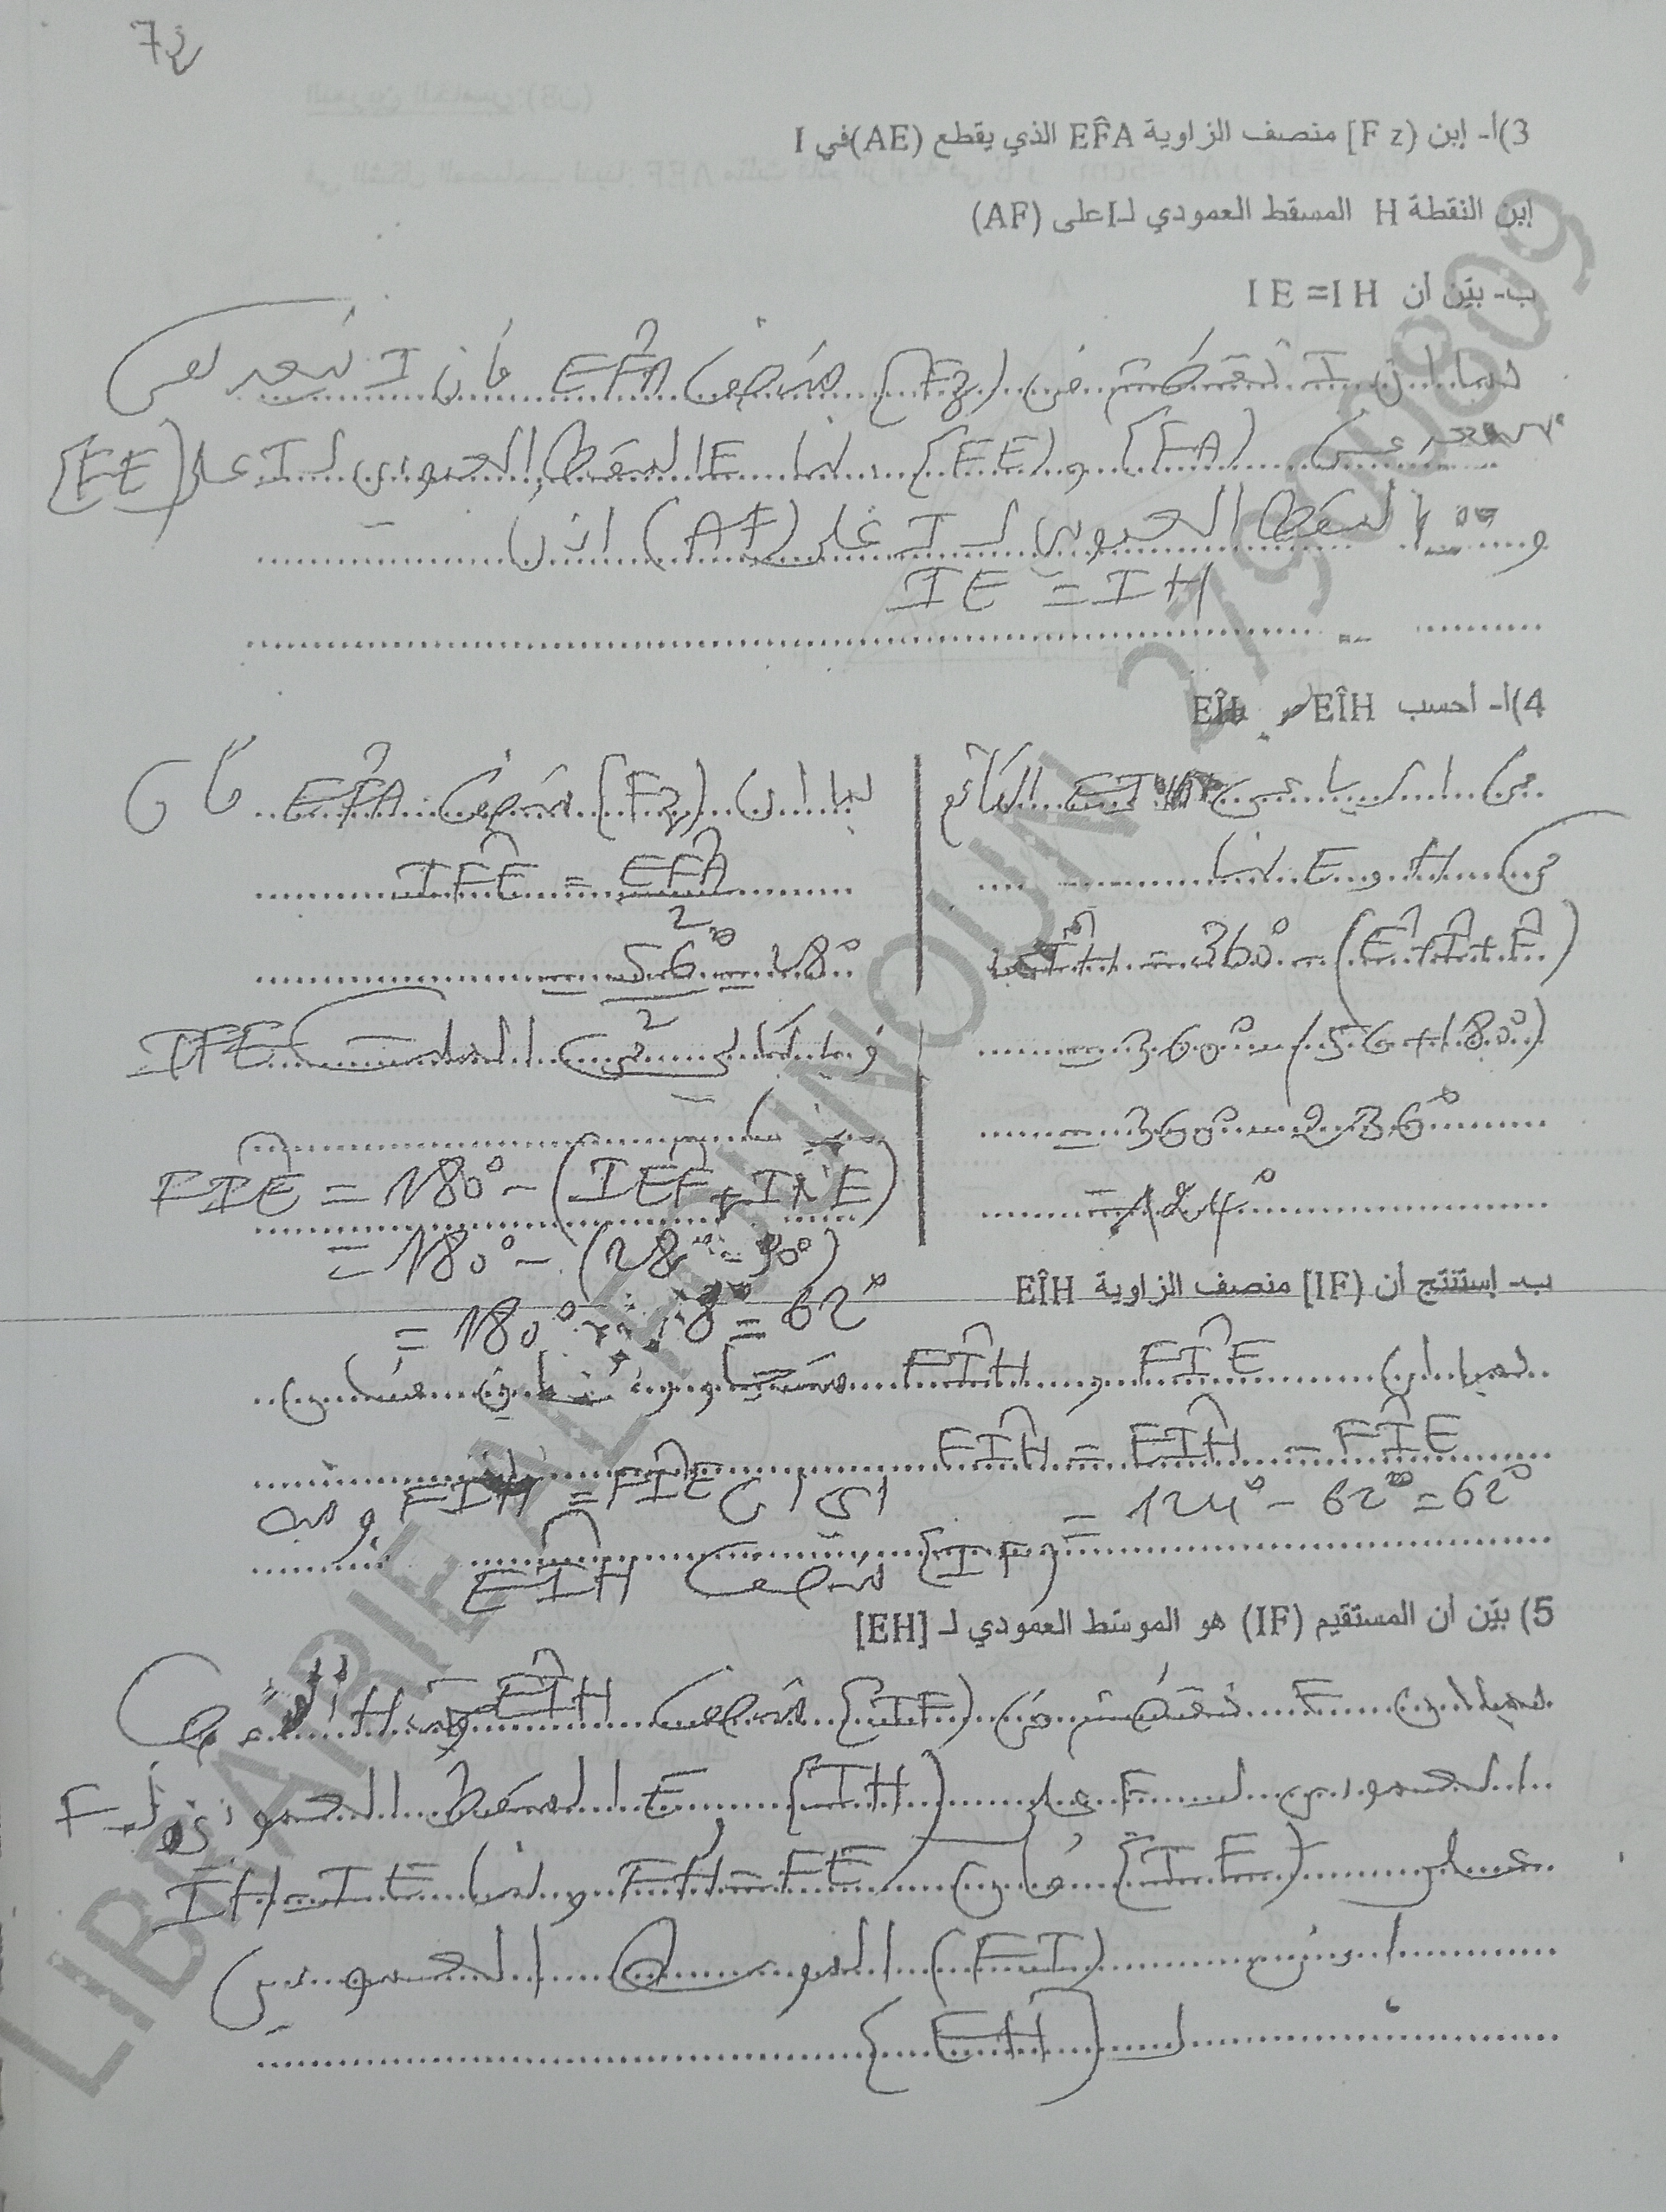 7
3)أ- إبن [F z) منصف الزاوية EF̂A الذي يقطع (AE) في I
إبن النقطة H المسقط العمودي لـ I على (AF)
ب- بيّن أن I E =I H
بما أن I نقطة من [Fz) منصف EF̂A فإن I تبعد نفس
البعد عن [FA) و [FE) بما E المسقط العمودي لـ I على [FE)
و المسقط العمودي لـ I على (AF) اذن
IE = IH
4)أ- أحسب EÎH
من الرباعي القائم
في H و E لنا
= 360° - (Ê + Ĥ + F̂)
= 360° - (56 + 180°)
= 360° - 236°
= 124°
بما أن [Fz) منصف EF̂A فإن
IF̂E = EF̂A / 2
= 56° / 2 = 28°
و بالتالي في المثلث IFE
لنا
FÎE = 180° - (IÊF + IF̂E)
= 180° - (28° + 90°)
= 180° - 118° = 62°
ب- إستنتج أن [IF) منصف الزاوية EÎH
بما أن FÎE و FÎH متجاورتان فإن
FÎH = FÎH - FÎE
= 124° - 62° = 62°
اي ان FÎH = FÎE ومنه
[IF) منصف EÎH
5) بيّن أن المستقيم (IF) هو الموسّط العمودي لـ [EH]
بما أن F نقطة من [IF) منصف EÎH و H المسقط
العمودي لـ F على [IH) و E المسقط العمودي لـ F
على [IE) فإن FH = FE و لنا IH = IE
اذن (FI) الموسط العمودي
لـ [EH]
LIBRAIRIE ALEOUNOUN 27900809